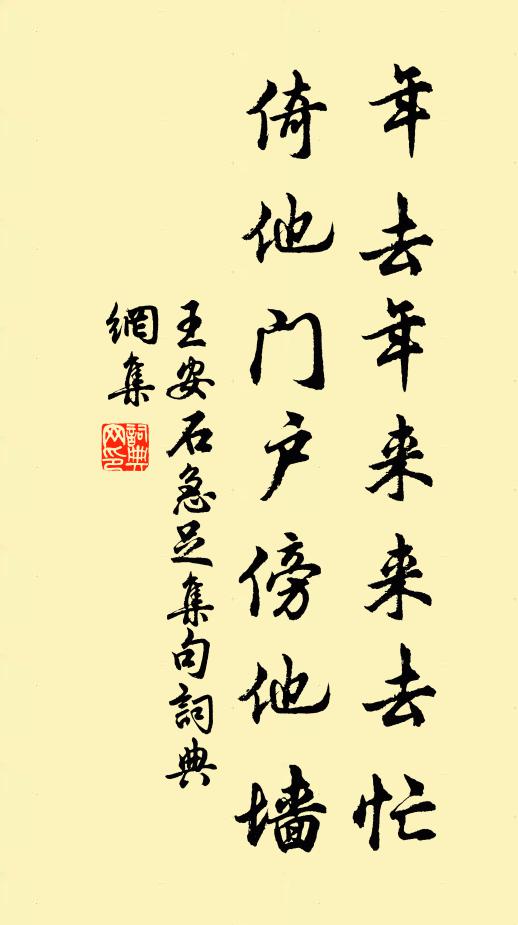 年去年来来去忙
倚他门户傍他墙
王安石急足集句詞典
網集
詞典网印